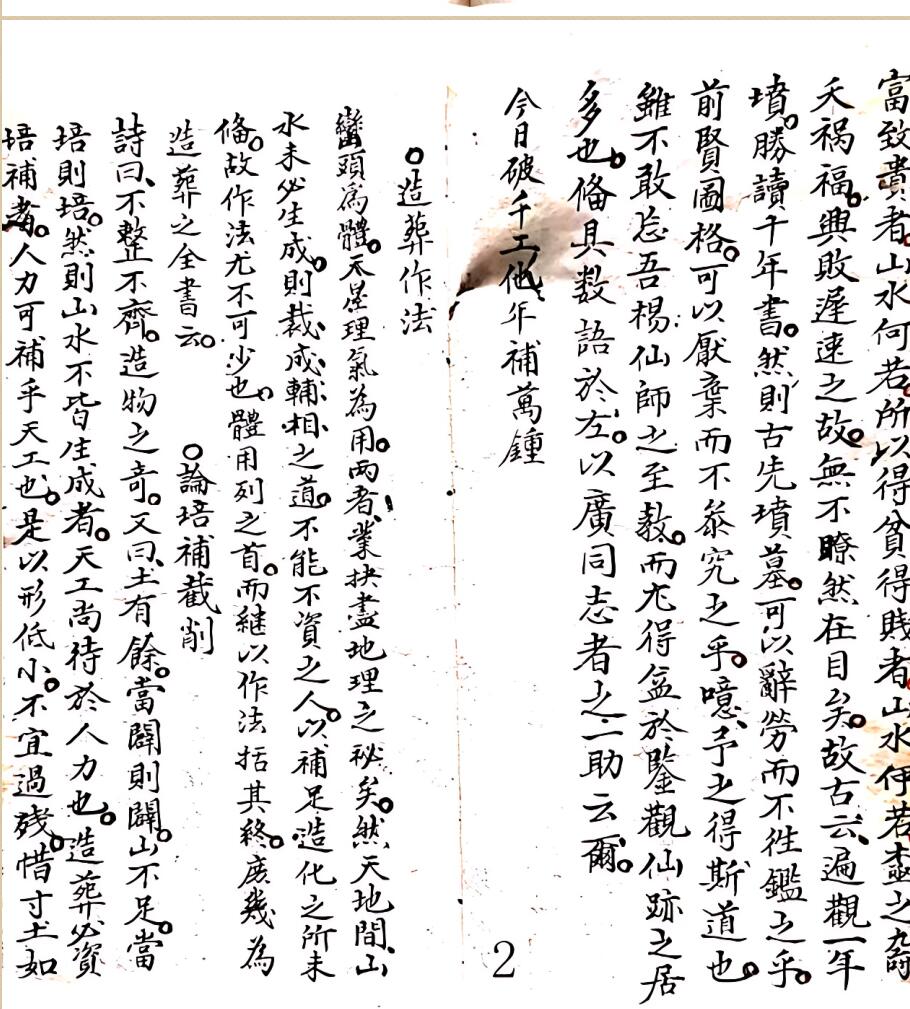 富致貴者山水何若所以得貧得賤者山水伊若壺之奇
夭禍福興敗遲速之故無不瞭然在目矣故古云遍觀一年
墳勝讀千年書然則古先墳墓可以辭勞而不徃鑑之乎
前賢圖格可以厭棄而不叅究之乎噫予之得斯道也
雖不敢忘吾楊仙師之至教而尤得益於鑒觀仙跡之居
多也俻具数語於左以廣同志者之一助云爾
今日破千工他年補萬鍾
2
造葬作法
巒頭為體天星理氣為用两者業抉盡地理之秘矣然天地間山
水未必生成則裁成輔相之道不能不資之人以補足造化之所未
俻故作法尤不可少也體用列之首而継以作法括其終庶幾為
造葬之全書云
論培補截削
詩曰不整不齊造物之奇又曰土有餘當闢則闢山不足當
培則培然則山水不皆生成者天工尚待於人力也造葬必資
培補者人力可補乎天工也是以形低小不宜過殘惜寸土如